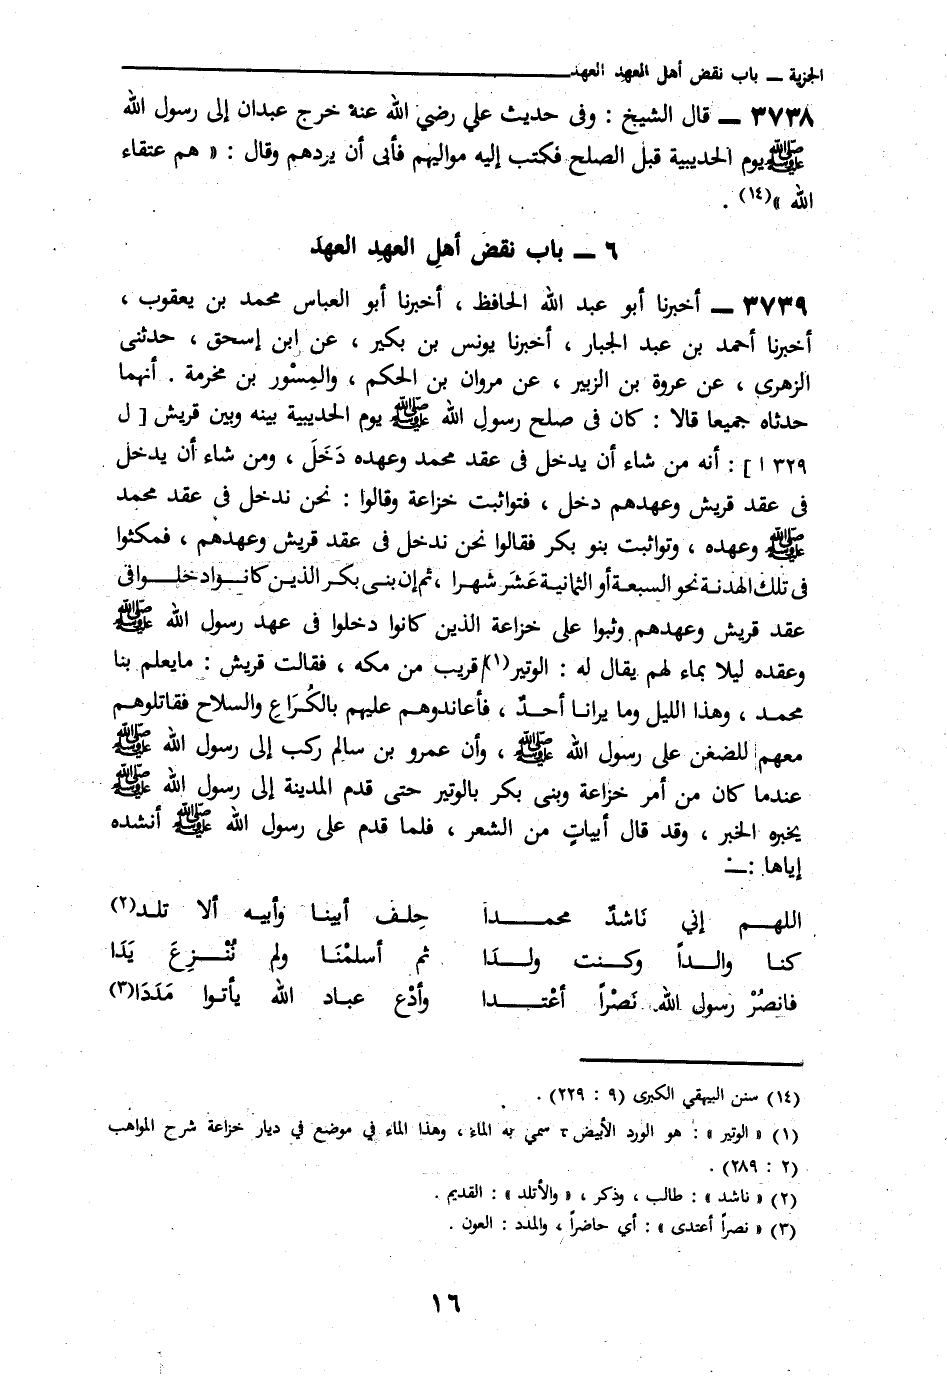 الجزية ــ باب نقض أهل العهد العهد
٣٧٣٨ ــ قال الشيخ : وفى حديث علي رضي الله عنه خرج عبدان إلى رسول الله
ﷺ يوم الحديبية قبل الصلح فكتب إليه مواليهم فأبى أن يردهم وقال : « هم عتقاء
الله »(١٤) .
٦ ــ باب نقض أهلِ العهدِ العهدَ
٣٧٣٩ ــ أخبرنا أبو عبد الله الحافظ ، أخبرنا أبو العباس محمد بن يعقوب ،
أخبرنا أحمد بن عبد الجبار ، أخبرنا يونس بن بكير ، عن ابن إسحق ، حدثنى
الزهرى ، عن عروة بن الزبير ، عن مروان بن الحكم ، والمِسْور بن مخرمة . أنهما
حدثاه جميعا قالا : كان فى صلح رسولِ الله ﷺ يوم الحديبية بينه وبين قريش [ ل
٣٢٩ ا ] : أنه من شاء أن يدخل فى عقد محمد وعهده دَخَلَ ، ومن شاء أن يدخل
فى عقد قريش وعهدهم دخل ، فتواثبت خزاعة وقالوا : نحن ندخل فى عقد محمد
ﷺ وعهده ، وتواثبت بنو بكر فقالوا نحن ندخل فى عقد قريش وعهدهم ، فمكثوا
فى تلك الهدنة نحو السبعة أو الثمانية عَشَر شهرا ، ثم إن بنى بكر الذين كانوا دخلوا فى
عقد قريش وعهدهم وثبوا على خزاعة الذين كانوا دخلوا فى عهد رسول الله ﷺ
وعقده ليلا بماء لهم يقال له : الوتير(١) قريب من مكه ، فقالت قريش : مايعلم بنا
محمد ، وهذا الليل وما يرانا أحدٌ ، فأعاندوهم عليهم بالكُرَاعِ والسلاح فقاتلوهم
معهم للضغن على رسول الله ﷺ ، وأن عمرو بن سالم ركب إلى رسول الله ﷺ
عندما كان من أمر خزاعة وبنى بكر بالوتير حتى قدم المدينة إلى رسول الله ﷺ
يخبره الخبر ، وقد قال أبياتٍ من الشعر ، فلما قدم على رسول الله ﷺ أنشده
إياها :ــ
اللهم إني نَاشدٌ محمدا حِلف أبينا وأبيه ألا تلد(٢)
كنا والداً وكنت ولدَا ثم أسلمْنَا ولم نُنْزِعَ يَدَا
فانصُرْ رسول الله نَصْراً أعْتدا وأدْع عباد الله يأتوا مَدَدَا(٣)
(١٤) سنن البيهقي الكبرى (٩ : ٢٢٩) .
(١) « الوتير » : هو الورد الأبيض سمي به الماء ، وهذا الماء في موضع في ديار خزاعة شرح المواهب
(٢ : ٢٨٩) .
(٢) « ناشد » : طالب ، وذكر ، « والأتلد » : القديم .
(٣) « نصراً أعتدى » : أي حاضراً ، والمدد : العون .
١٦